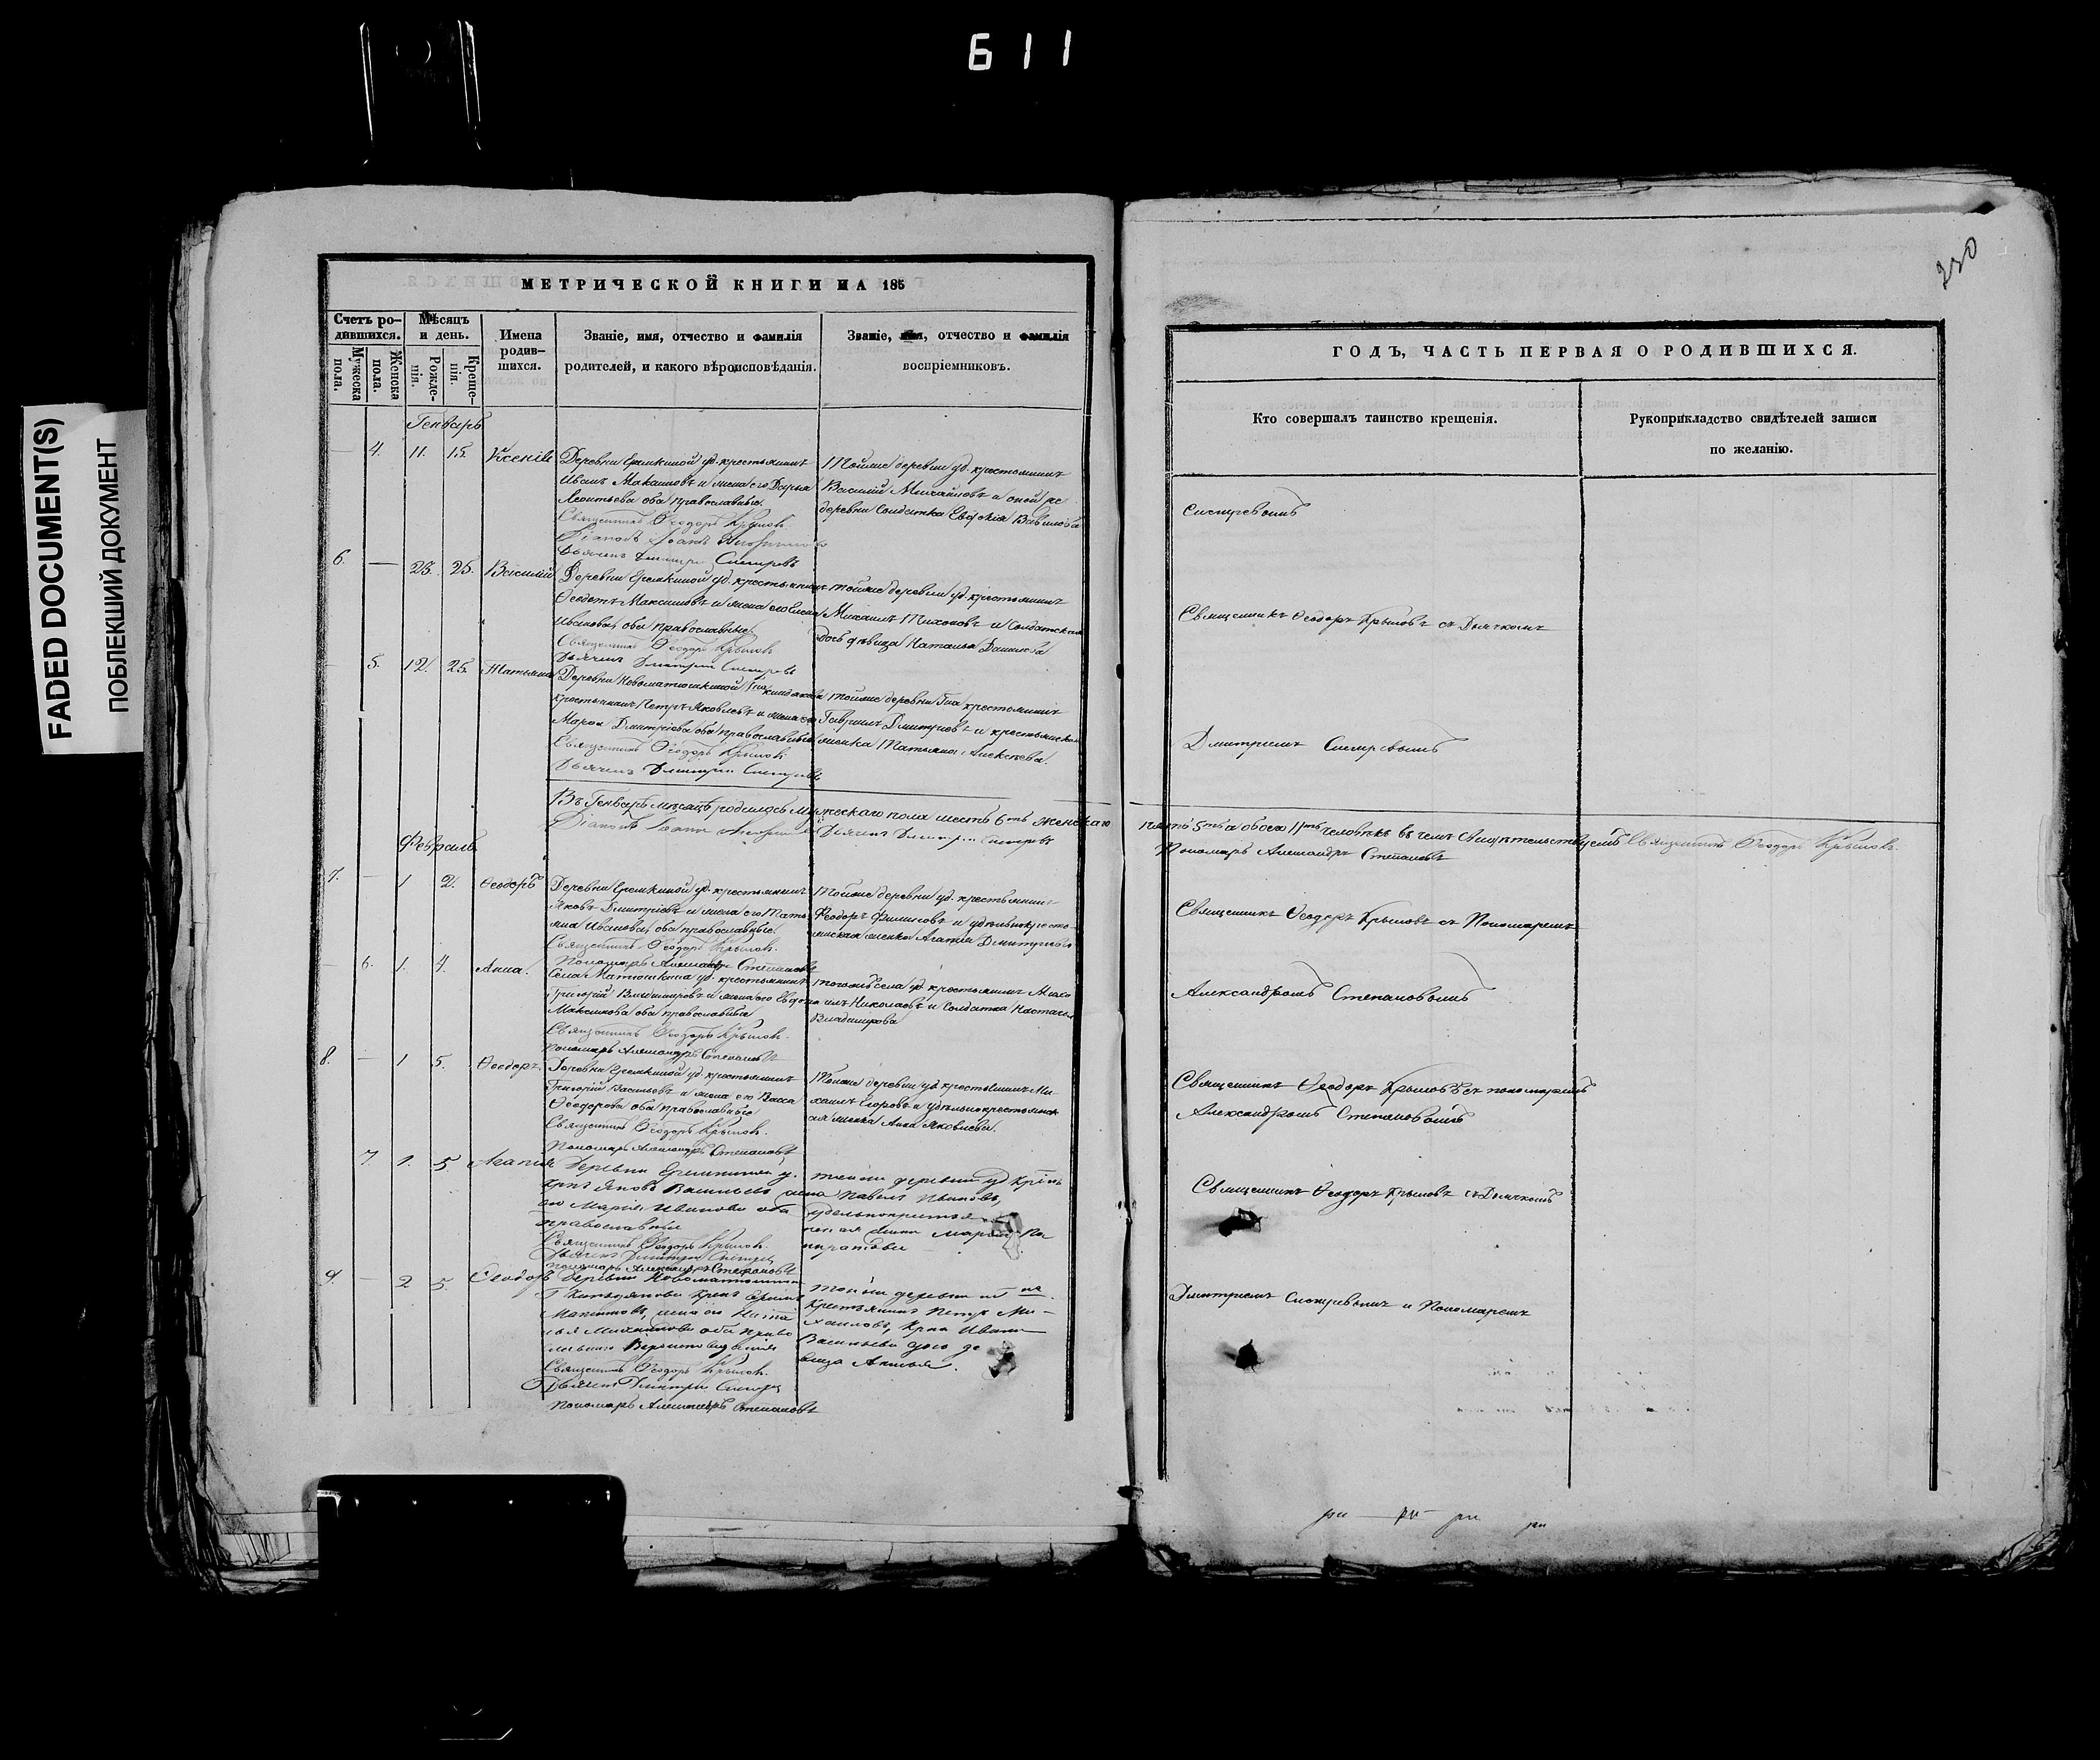 611
FADED DOCUMENT(S)
ПОБЛЕКШИЙ ДОКУМЕНТ
230
МЕТРИЧЕСКОЙ КНИГИ НА 185
Счетъ ро-
дившихся.
Мужеска
пола.
Женска
пола.
Мѣсяцъ
и день.
Рожде-
нія.
Креще-
нія.
Имена
родив-
шихся.
Званіе, имя, отчество и фамилія
родителей, и какого вѣроисповѣданія.
Званіе, имя, отчество и фамилія
воспріемниковъ.
Генварь
— 4. 11. 15. Ксенія
Деревни Еремкиной уд. крестьянинъ
Иванъ Максимовъ и жена его Дарья
Леонтьева оба православные.
Священникъ Ѳеодоръ Крыловъ.
Діаконъ Іоаннъ
Дьячекъ Дмитрій Снегиревъ
Тойже деревни уд. крестьянинъ
Василій Михайловъ и оной же
деревни Солдатка Евдокія Вавилова
6. — 23. 25. Василій
Деревни Еремкиной уд. крестьянинъ
Ѳеодотъ Максимовъ и жена его Елена
Иванова, оба православные
Священникъ Ѳеодоръ Крыловъ
Дьячекъ Дмитрій Снегиревъ
тойже деревни уд. крестьянинъ
Михаилъ Тихоновъ и Солдатская
дочь девица Наталья Данилова
— 5. 12. 25. Татьяна
Деревни Новоматюшкиной
крестьянинъ Петръ Яковлевъ и жена его
Марѳа Дмитріева оба православные
Священникъ Ѳеодоръ Крыловъ
Дьячекъ Дмитрій Снегиревъ
тойже деревни Гна крестьянинъ
Гавріилъ Дмитріевъ и крестьянская
женка Татьяна Алексѣева.
Въ Генварѣ мѣсяцѣ родилось мужескаго пола шесть 6ть женскаго
Діаконъ Іоаннъ
Дьячекъ Дмитрій Снегиревъ
Февраль
7. — 1 2. Ѳеодоръ
Деревни Еремкиной уд. крестьянинъ
Яковъ Дмитріевъ и жена его Тать-
яна Иванова, оба православные.
Священникъ Ѳеодоръ Крыловъ.
Пономарь Александръ Степановъ
Тойже деревни уд. крестьянинъ
Ѳеодоръ Филиповъ и удѣльнокресть-
янская женка Агапія Дмитріева
— 6. 1. 4. Анна.
Села Матюшкина уд. крестьянинъ
Григорій Владиміровъ и жена его Евдокія
Максимова оба православные
Священникъ Ѳеодоръ Крыловъ.
Пономарь Александръ Степановъ
тогожъ села уд. крестьянинъ Миха-
илъ Николаевъ и Солдатка Настасья
Владимірова
8. — 1 5. Ѳеодоръ.
Деревни Еремкиной уд. крестьянинъ
Григорій Васильевъ и жена его Васса
Ѳеодорова оба православные
Священникъ Ѳеодоръ Крыловъ.
Пономарь Александръ Степановъ
Тойже деревни уд. крестьянинъ Ми-
хаилъ Егоровъ и удѣльнокрестьянск-
ая женка Анна Яковлева.
7. 1. 5 Агапія
Деревни Еремкиной у.
Яковъ Васильевъ жена
его Марія Иванова оба
православніе
Священникъ Ѳеодоръ Крыловъ.
Дьячекъ Дмитрій Снегирев
Пономарь Александръ Степановъ
тойжи деревни уд
Павелъ Ивановъ,
Па
нкратова
9. — 2 5. Ѳеодоръ
Деревни Новоматюшкиной
Священникъ Ѳеодоръ Крыловъ.
Дьячекъ Дмитрій Снегирев
Пономарь Александръ Степановъ
тойжи деревни
Крестьянинъ Петръ Ми-
хаиловъ, Ивана
Васильева дочь де
вица
ГОДЪ, ЧАСТЬ ПЕРВАЯ О РОДИВШИХСЯ.
Кто совершалъ таинство крещенія.
Рукоприкладство свидѣтелей записи
по желанію.
Снегиревымъ
Священникъ Ѳеодоръ Крыловъ съ Дьячкомъ
Дмитріемъ Снегиревымъ
пять 5ть а обоего 11ть человѣкъ въ чемъ Свидѣтельствуемъ Священникъ Ѳеодоръ Крыловъ.
Пономарь Александръ Степановъ
Священникъ Ѳеодоръ Крыловъ съ Пономаремъ
Александромъ Степановымъ
Священникъ Ѳеодоръ Крыловъ съ пономаремъ
Александромъ Степановымъ
Священникъ Ѳеодоръ Крыловъ съ Дьячкомъ
Дмитріемъ Снегиревымъ и Пономаремъ
ри — ри — ри ри